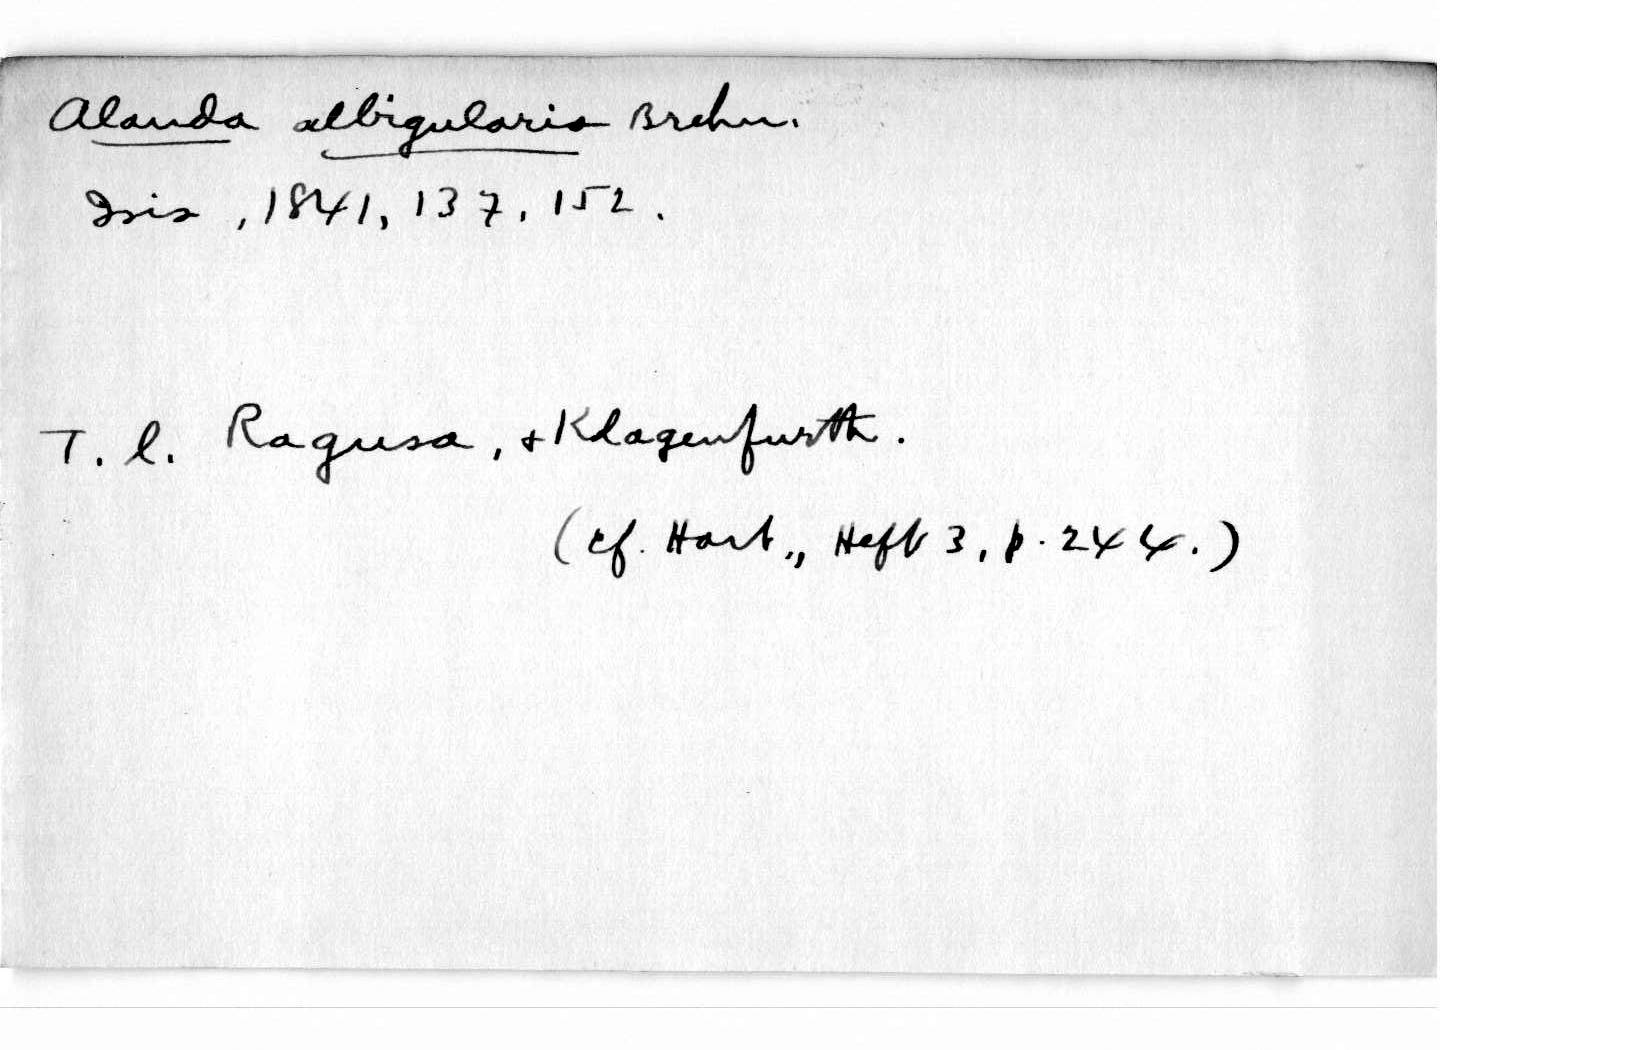 Alauda albigularis Brehm.
Isis, 1841, 137, 152.
T. l. Ragusa, + Klagenfurth.
(cf. Hart., Heft 3, p. 244.)